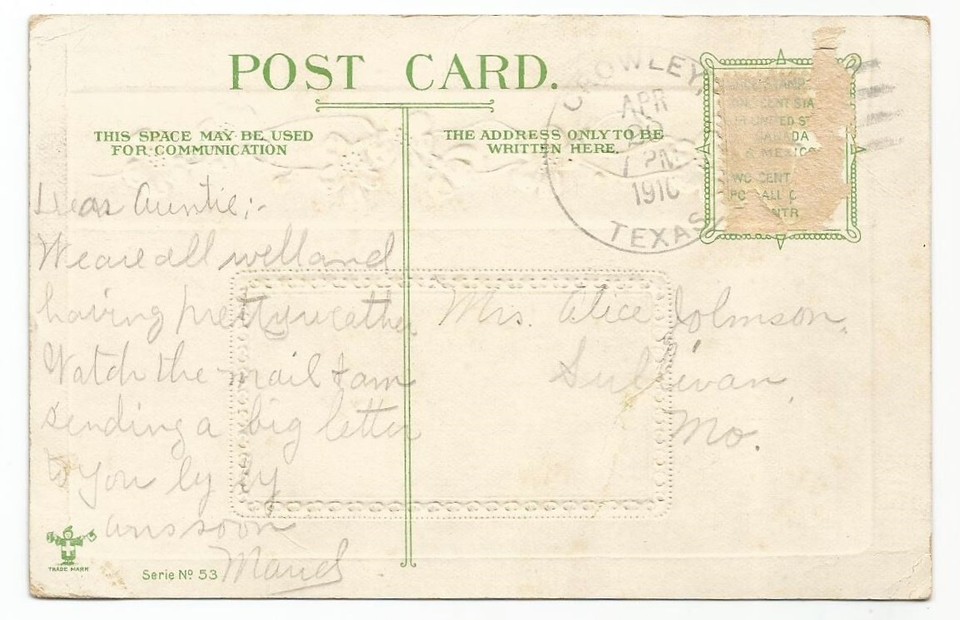 POST CARD.
THIS SPACE MAY BE USED
FOR COMMUNICATION
THE ADDRESS ONLY TO BE
WRITTEN HERE.
CROWLEY,
APR
PM
1910
TEXAS
CENT STA
UNITED ST
MEXICO
CENT
ALL
Dear Auntie;-
We are all well and
having pretty weather
Watch the mail I am
sending a big letter
to you by by
ans soon
Maud
Mrs. Alice Johnson.
Sullivan,
Mo.
TRADE MARK
Serie No 53